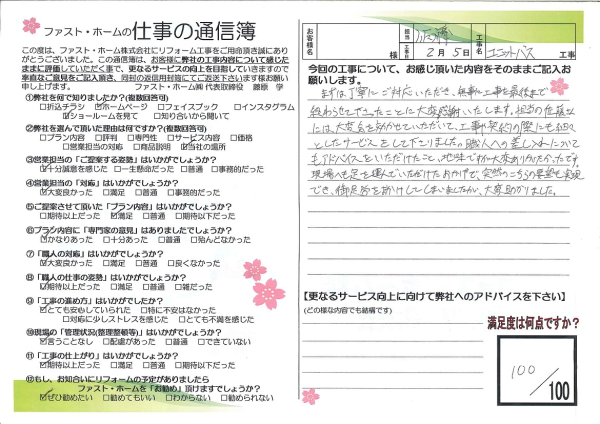 ファスト・ホームの仕事の通信簿
この度は、ファスト・ホーム株式会社にリフォーム工事をご用命頂き誠にありがとうございました。この通信簿は、お客様に弊社の工事内容について感じたままに評価していただく事で、更なるサービスの向上を目指していきますので率直なご意見をご記入頂き、同封の返信用封筒にてご返送下さいます様お願い申し上げます。
ファスト・ホーム㈱ 代表取締役 藤原 学
①弊社を何で知りましたか?(複数回答可)
□折込チラシ ☑ホームページ □フェイスブック □インスタグラム
☑ショールームを見て □知り合いから聞いて
②弊社を選んで頂いた理由は何ですか?(複数回答可)
□プラン内容 □評判 □専門性 □サービス内容 □価格
□営業担当の対応 □商品説明 ☑当社の場所
③営業担当の「ご提案する姿勢」はいかがでしょうか?
☑十分誠意を感じた □一生懸命だった □普通 □事務的だった
④営業担当の「対応」はいかがでしょうか?
☑大変良かった □満足 □普通 □事務的だった
⑤ご提案させて頂いた「プラン内容」はいかがでしょうか?
□期待以上だった ☑満足 □普通 □期待以下だった
⑥プラン内容に「専門家の意見」はありましたでしょうか?
☑かなりあった □十分あった □普通 □殆んどなかった
⑦「職人の対応」はいかがでしょうか?
☑大変良かった □満足 □普通 □良くなかった
⑧「職人の仕事の姿勢」はいかがでしたか?
☑期待以上だった □満足 □普通 □雑だった
⑨「工事の進め方」はいかがでしたか?
☑とても安心していられた □特に不安はなかった
□対応に少しストレスを感じた □とても不満を感じた
⑩現場の「管理状況(整理整頓等)」はいかがでしょうか?
☑言うことなし □配慮があった □普通 □できていない
⑪「工事の仕上がり」はいかがでしょうか?
☑期待以上だった □満足 □普通 □期待以下だった
⑫もし、お知合いにリフォームの予定がありましたら
ファスト・ホームを「お勧め」頂けますでしょうか?
☑ぜひ勧めたい □勧めてもいい □わからない □勧められない
お客様名
様
担当
工事日
2月5日
工事名
ユニットバス
工事
今回の工事について、お感じ頂いた内容をそのままご記入お願いします。
まずは丁寧にご対応いただき、無事に工事を最後まで
終わらせて下さったことに大変感謝いたします。担当の佐藤さん
には大変お気づかいいただいて、工事契約の際にも
としたサービスをして下さりました。職人への差し入れについて
もアドバイスをいただけたこと、地味ですが大変ありがたかったです。
現場へも足を運んでいただけたおかげで、突然のこちらの要望も実現
でき、御足労をおかけしてしまいましたが、大変助かりました。
【更なるサービス向上に向けて弊社へのアドバイスを下さい】
(どの様な内容でも結構です)
満足度は何点ですか?
100/100